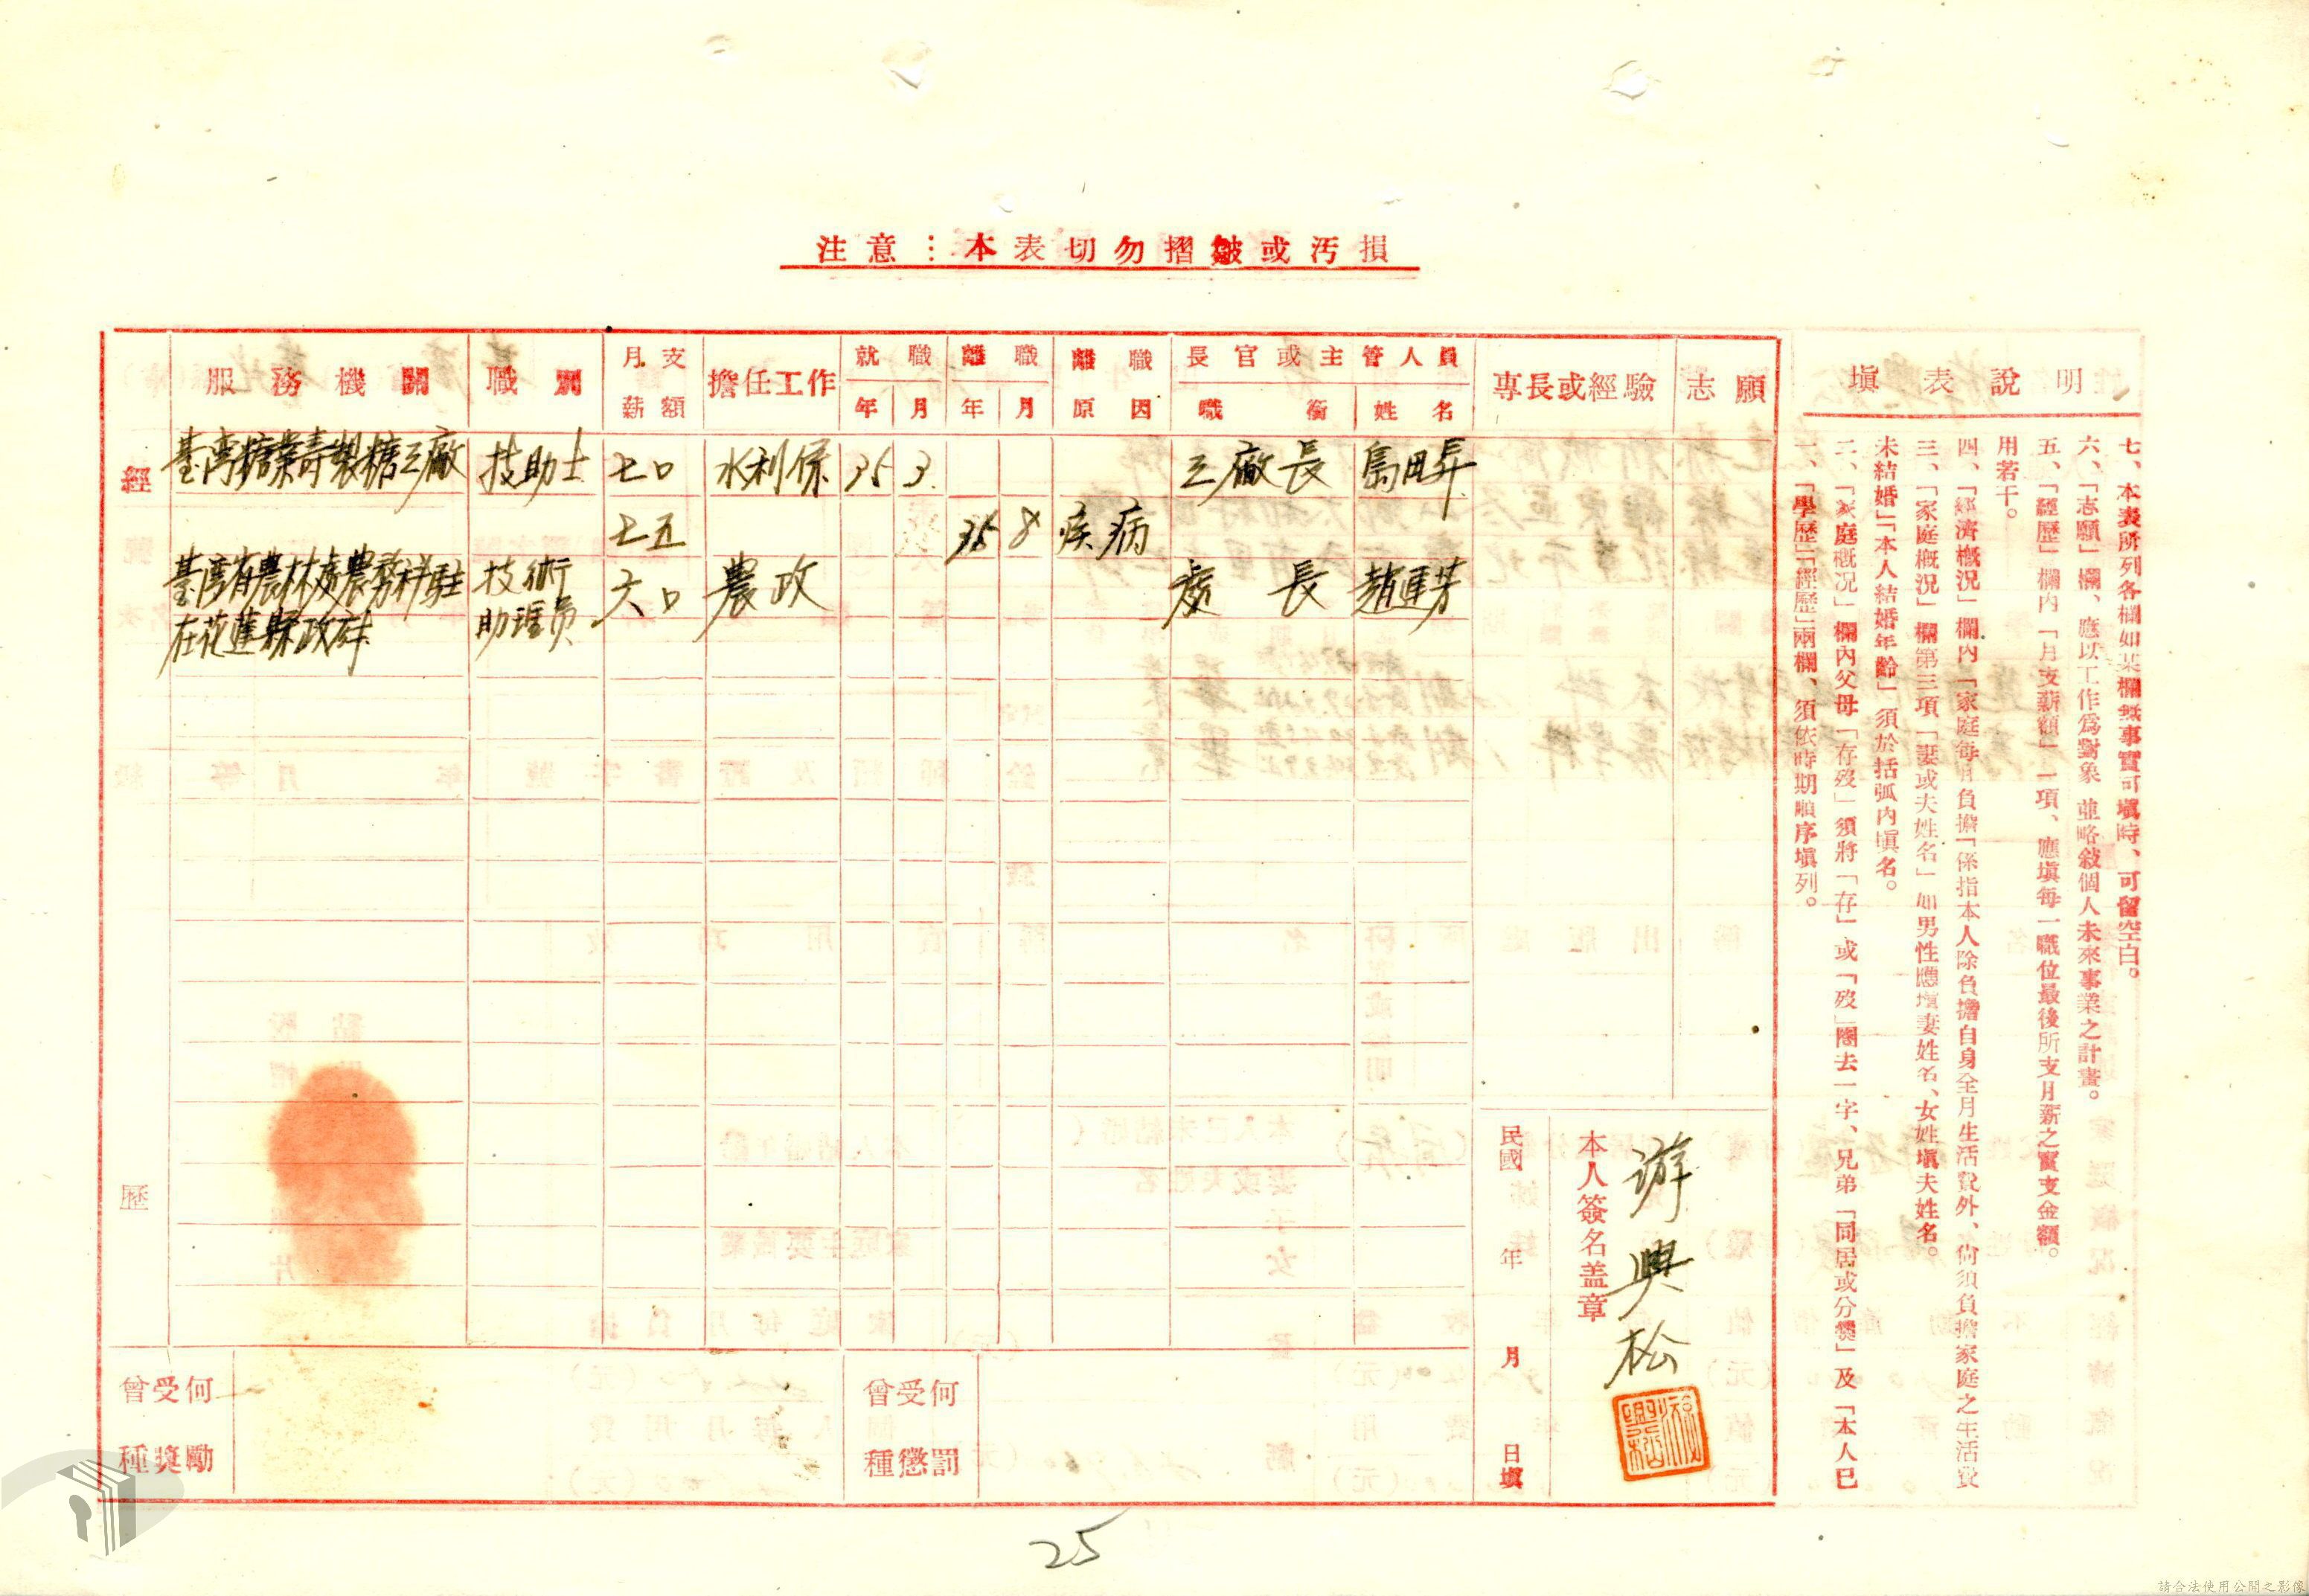 注意：本表切勿摺皺或汚損
經歷
服務機關
職別
月支薪額
擔任工作
就職
年
月
離職
年
月
離職原因
長官或主管人員
職銜
姓名
專長或經驗
志願
臺湾糖業壽製糖工廠
技助士
七〇
水利係
35
3
工廠長
島田昇
七五
35
8
疾病
臺湾省農林處農務科駐
在花蓮縣政府
技術
助理員
六〇
農政
處長
趙連芳
曾受何
種獎勵
曾受何
種懲罰
民國 年 月 日填
本人簽名盖章
游興松
游興松
填表說明
一、「學歷」「經歷」兩欄、須依時期順序填列。
二、「家庭概況」欄內父母「存歿」須將「存」或「歿」圈去一字、兄弟「同居或分爨」及「本人已
未結婚」「本人結婚年齡」須於括弧內填名。
三、「家庭概況」欄第三項「妻或夫姓名」如男性應填妻姓名、女姓填夫姓名。
四、「經濟概況」欄內「家庭每月負擔」係指本人除負擔自身全月生活費外、尙須負擔家庭之生活費
用若干。
五、「經歷」欄內「月支薪額」一項、應填每一職位最後所支月薪之實支金額。
六、「志願」欄、應以工作爲對象 並略敍個人未來事業之計畫。
七、本表所列各欄如某欄無事實可填時、可留空白。
25
請合法使用公開之影像